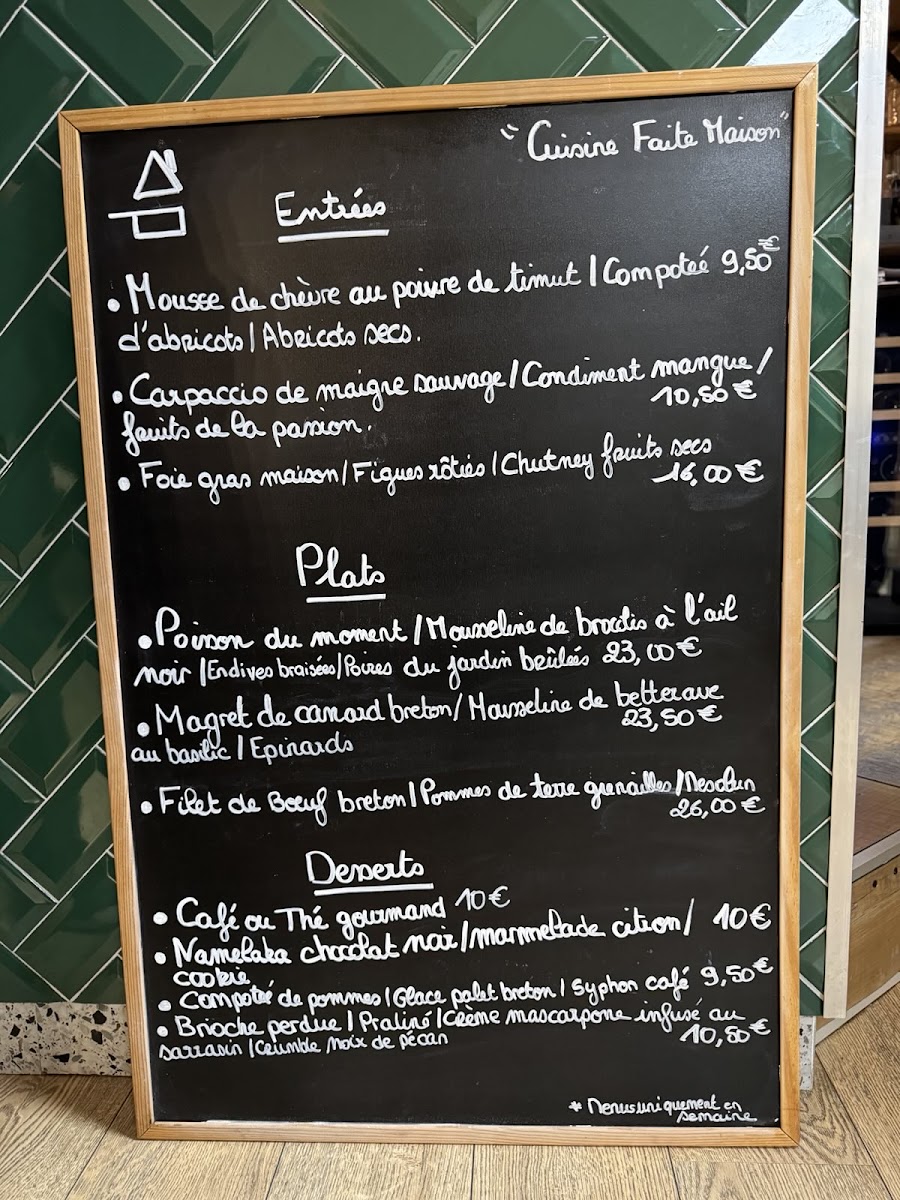 "Cuisine Faite Maison"
Entrées
• Mousse de chèvre au poivre de timut | Compoteé 9,50€
d'abricots | Abricots secs.
• Carpaccio de maigre sauvage / Condiment mangue /
fruits de la passion. 10,50 €
• Foie gras maison / Figues rôties / Chutney fruits secs
16,00 €
Plats
• Poisson du moment / Mousseline de brocolis à l'ail
noir / Endives braisées / Poires du jardin brûlés 23,00 €
• Magret de canard breton / Mousseline de betterave
au basilic / Epinards 23,50 €
• Filet de Boeuf breton / Pommes de terre grenailles /
26,00 €
Desserts
• Café ou Thé gourmand 10 €
• Namelaka chocolat noir / marmelade citron / 10 €
cookie
• Compoteé de pommes / Glace palet breton / Syphon café 9,50 €
• Brioche perdue | Praliné | Crème mascarpone infusé au
sarrasin | Crumble noix de pécan 10,50 €
* Menus uniquement en
semaine